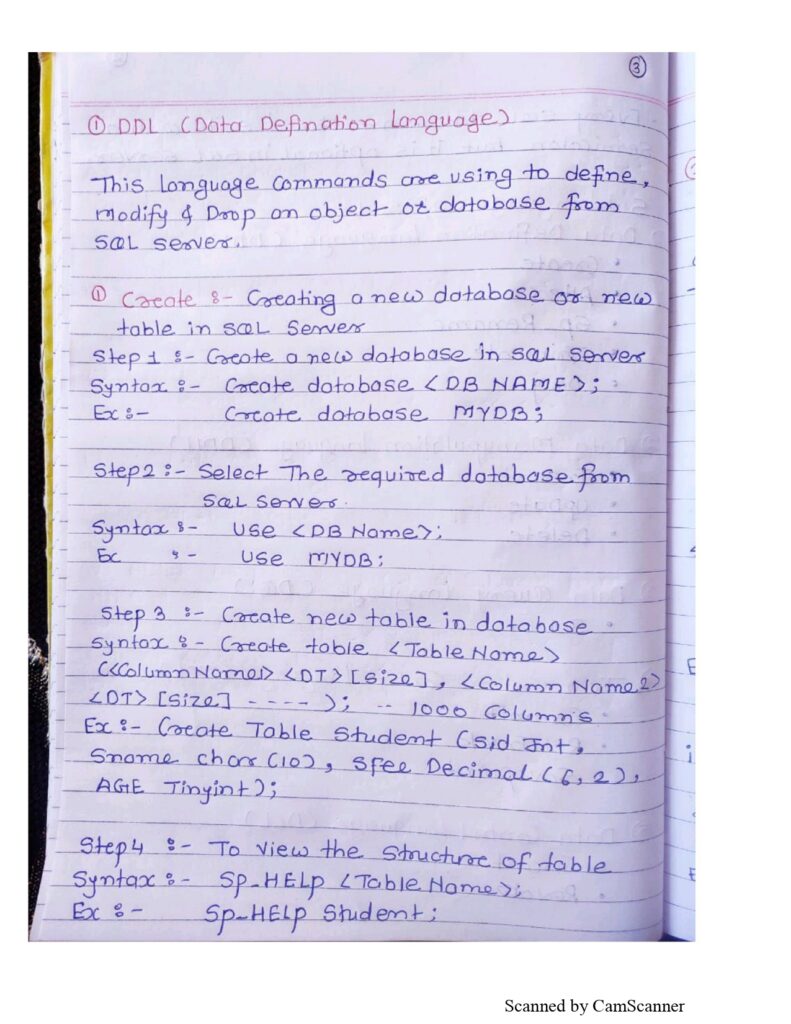 3
① DDL (Data Defination Language)
This language commands are using to define,
modify & Drop an object or database from
SQL server.
① Create :- Creating a new database or new
table in SQL Server
Step 1 :- Create a new database in SQL server
Syntax :- Create database <DB NAME>;
Ex :- Create database MYDB;
Step2 :- Select The required database from
SQL server.
Syntax :- USE <DB Name>;
Ex :- USE MYDB;
Step 3 :- Create new table in database
Syntax :- Create table <Table Name>
(<Column Name1> <DT> [Size], <Column Name2>
<DT> [Size] ---- ); -- 1000 Columns
Ex :- Create Table Student (Sid Int,
Sname char (10), Sfee Decimal (6,2),
AGE Tinyint);
Step4 :- To view the Structure of table
Syntax :- SP_HELP <Table Name>;
Ex :- SP_HELP Student;
Scanned by CamScanner